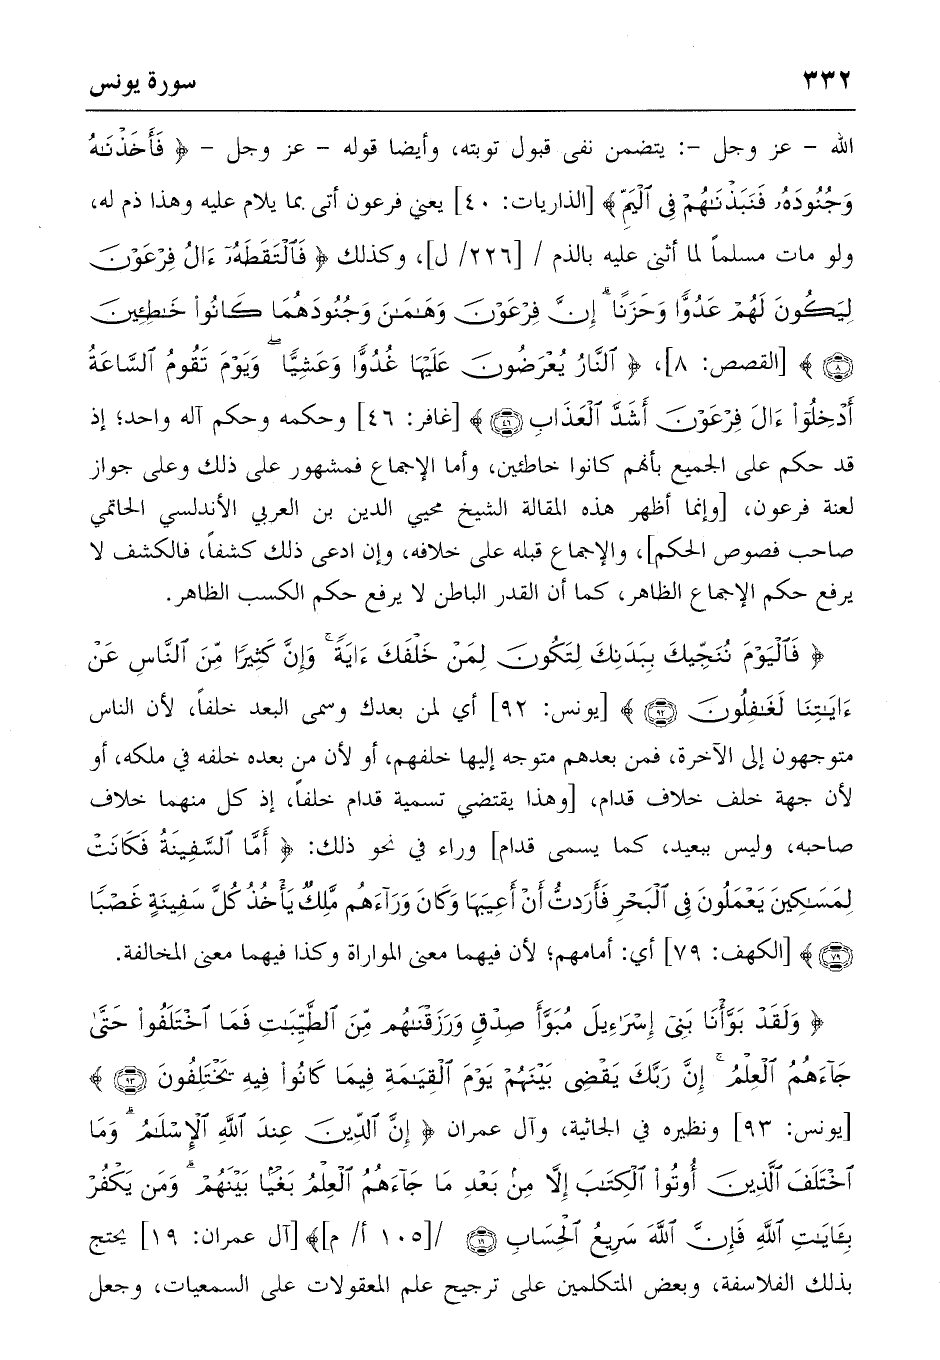 ٣٣٢ سورة يونس
الله – عز وجل –: يتضمن نفى قبول توبته، وأيضا قوله – عز وجل – ﴿ فَأَخَذْنَٰهُ
وَجُنُودَهُۥ فَنَبَذْنَٰهُمْ فِى ٱلْيَمِّ ﴾ [الذاريات: ٤٠] يعني فرعون أتى بما يلام عليه وهذا ذم له،
ولو مات مسلماً لما أثنى عليه بالذم / [٢٢٦/ ل]، وكذلك ﴿ فَٱلْتَقَطَهُۥٓ ءَالُ فِرْعَوْنَ
لِيَكُونَ لَهُمْ عَدُوًّا وَحَزَنًا ۗ إِنَّ فِرْعَوْنَ وَهَٰمَٰنَ وَجُنُودَهُمَا كَانُوا۟ خَٰطِـِٔينَ
﴿٨﴾ ﴾ [القصص: ٨]، ﴿ ٱلنَّارُ يُعْرَضُونَ عَلَيْهَا غُدُوًّا وَعَشِيًّا ۖ وَيَوْمَ تَقُومُ ٱلسَّاعَةُ
أَدْخِلُوٓا۟ ءَالَ فِرْعَوْنَ أَشَدَّ ٱلْعَذَابِ ﴿٤٦﴾ ﴾ [غافر: ٤٦] وحكمه وحكم آله واحد؛ إذ
قد حكم على الجميع بأنهم كانوا خاطئين، وأما الإجماع فمشهور على ذلك وعلى جواز
لعنة فرعون، [وإنما أظهر هذه المقالة الشيخ محيي الدين بن العربي الأندلسي الحاتمي
صاحب فصوص الحكم]، والإجماع قبله على خلافه، وإن ادعى ذلك كشفاً، فالكشف لا
يرفع حكم الإجماع الظاهر، كما أن القدر الباطن لا يرفع حكم الكسب الظاهر.
﴿ فَٱلْيَوْمَ نُنَجِّيكَ بِبَدَنِكَ لِتَكُونَ لِمَنْ خَلْفَكَ ءَايَةً ۚ وَإِنَّ كَثِيرًا مِّنَ ٱلنَّاسِ عَنْ
ءَايَٰتِنَا لَغَٰفِلُونَ ﴿٩٢﴾ ﴾ [يونس: ٩٢] أي لمن بعدك وسمى البعد خلفاً، لأن الناس
متوجهون إلى الآخرة، فمن بعدهم متوجه إليها خلفهم، أو لأن من بعده خلفه في ملكه، أو
لأن جهة خلف خلاف قدام، [وهذا يقتضي تسمية قدام خلفاً، إذ كل منهما خلاف
صاحبه، وليس ببعيد، كما يسمى قدام] وراء في نحو ذلك: ﴿ أَمَّا ٱلسَّفِينَةُ فَكَانَتْ
لِمَسَٰكِينَ يَعْمَلُونَ فِى ٱلْبَحْرِ فَأَرَدتُّ أَنْ أَعِيبَهَا وَكَانَ وَرَآءَهُم مَّلِكٌ يَأْخُذُ كُلَّ سَفِينَةٍ غَصْبًا
﴿٧٩﴾ ﴾ [الكهف: ٧٩] أي: أمامهم؛ لأن فيهما معنى المواراة وكذا فيهما معنى المخالفة.
﴿ وَلَقَدْ بَوَّأْنَا بَنِىٓ إِسْرَٰٓءِيلَ مُبَوَّأَ صِدْقٍ وَرَزَقْنَٰهُم مِّنَ ٱلطَّيِّبَٰتِ فَمَا ٱخْتَلَفُوا۟ حَتَّىٰ
جَآءَهُمُ ٱلْعِلْمُ ۚ إِنَّ رَبَّكَ يَقْضِى بَيْنَهُمْ يَوْمَ ٱلْقِيَٰمَةِ فِيمَا كَانُوا۟ فِيهِ يَخْتَلِفُونَ ﴿٩٣﴾ ﴾
[يونس: ٩٣] ونظيره في الجاثية، وآل عمران ﴿ إِنَّ ٱلدِّينَ عِندَ ٱللَّهِ ٱلْإِسْلَٰمُ ۗ وَمَا
ٱخْتَلَفَ ٱلَّذِينَ أُوتُوا۟ ٱلْكِتَٰبَ إِلَّا مِنۢ بَعْدِ مَا جَآءَهُمُ ٱلْعِلْمُ بَغْيًۢا بَيْنَهُمْ ۗ وَمَن يَكْفُرْ
بِـَٔايَٰتِ ٱللَّهِ فَإِنَّ ٱللَّهَ سَرِيعُ ٱلْحِسَابِ ﴿١٩﴾ /[١٠٥ أ/ م]﴾ [آل عمران: ١٩] يحتج
بذلك الفلاسفة، وبعض المتكلمين على ترجيح علم المعقولات على السمعيات، وجعل